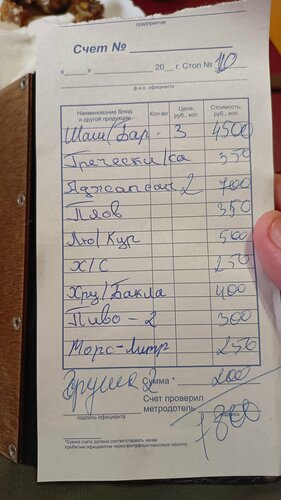 предприятие
Счет №
«___» ______ 20__ г. Стол № 10
ф.и.о. официанта
Наименование блюд и другой продукции Кол-во Цена, руб., коп. Стоимость, руб., коп.
Шаш/Бар - 3 4500
Гречески/са 350
Аджапсан 2 700
Плов 350
Лю/Кур 500
Х/С 250
Хру/Бакла 400
Пиво - 2 300
Морс-литр 250
Груша 2 Сумма * 200
Счет проверил
подпись официанта метрдотель подпись
7800
*Сумма счета должна соответствовать чекам
пробитым официантом через контрольно-кассовую машину